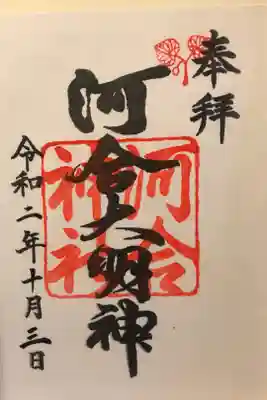 奉拝
河合大明神
河合神社
令和二年十月三日